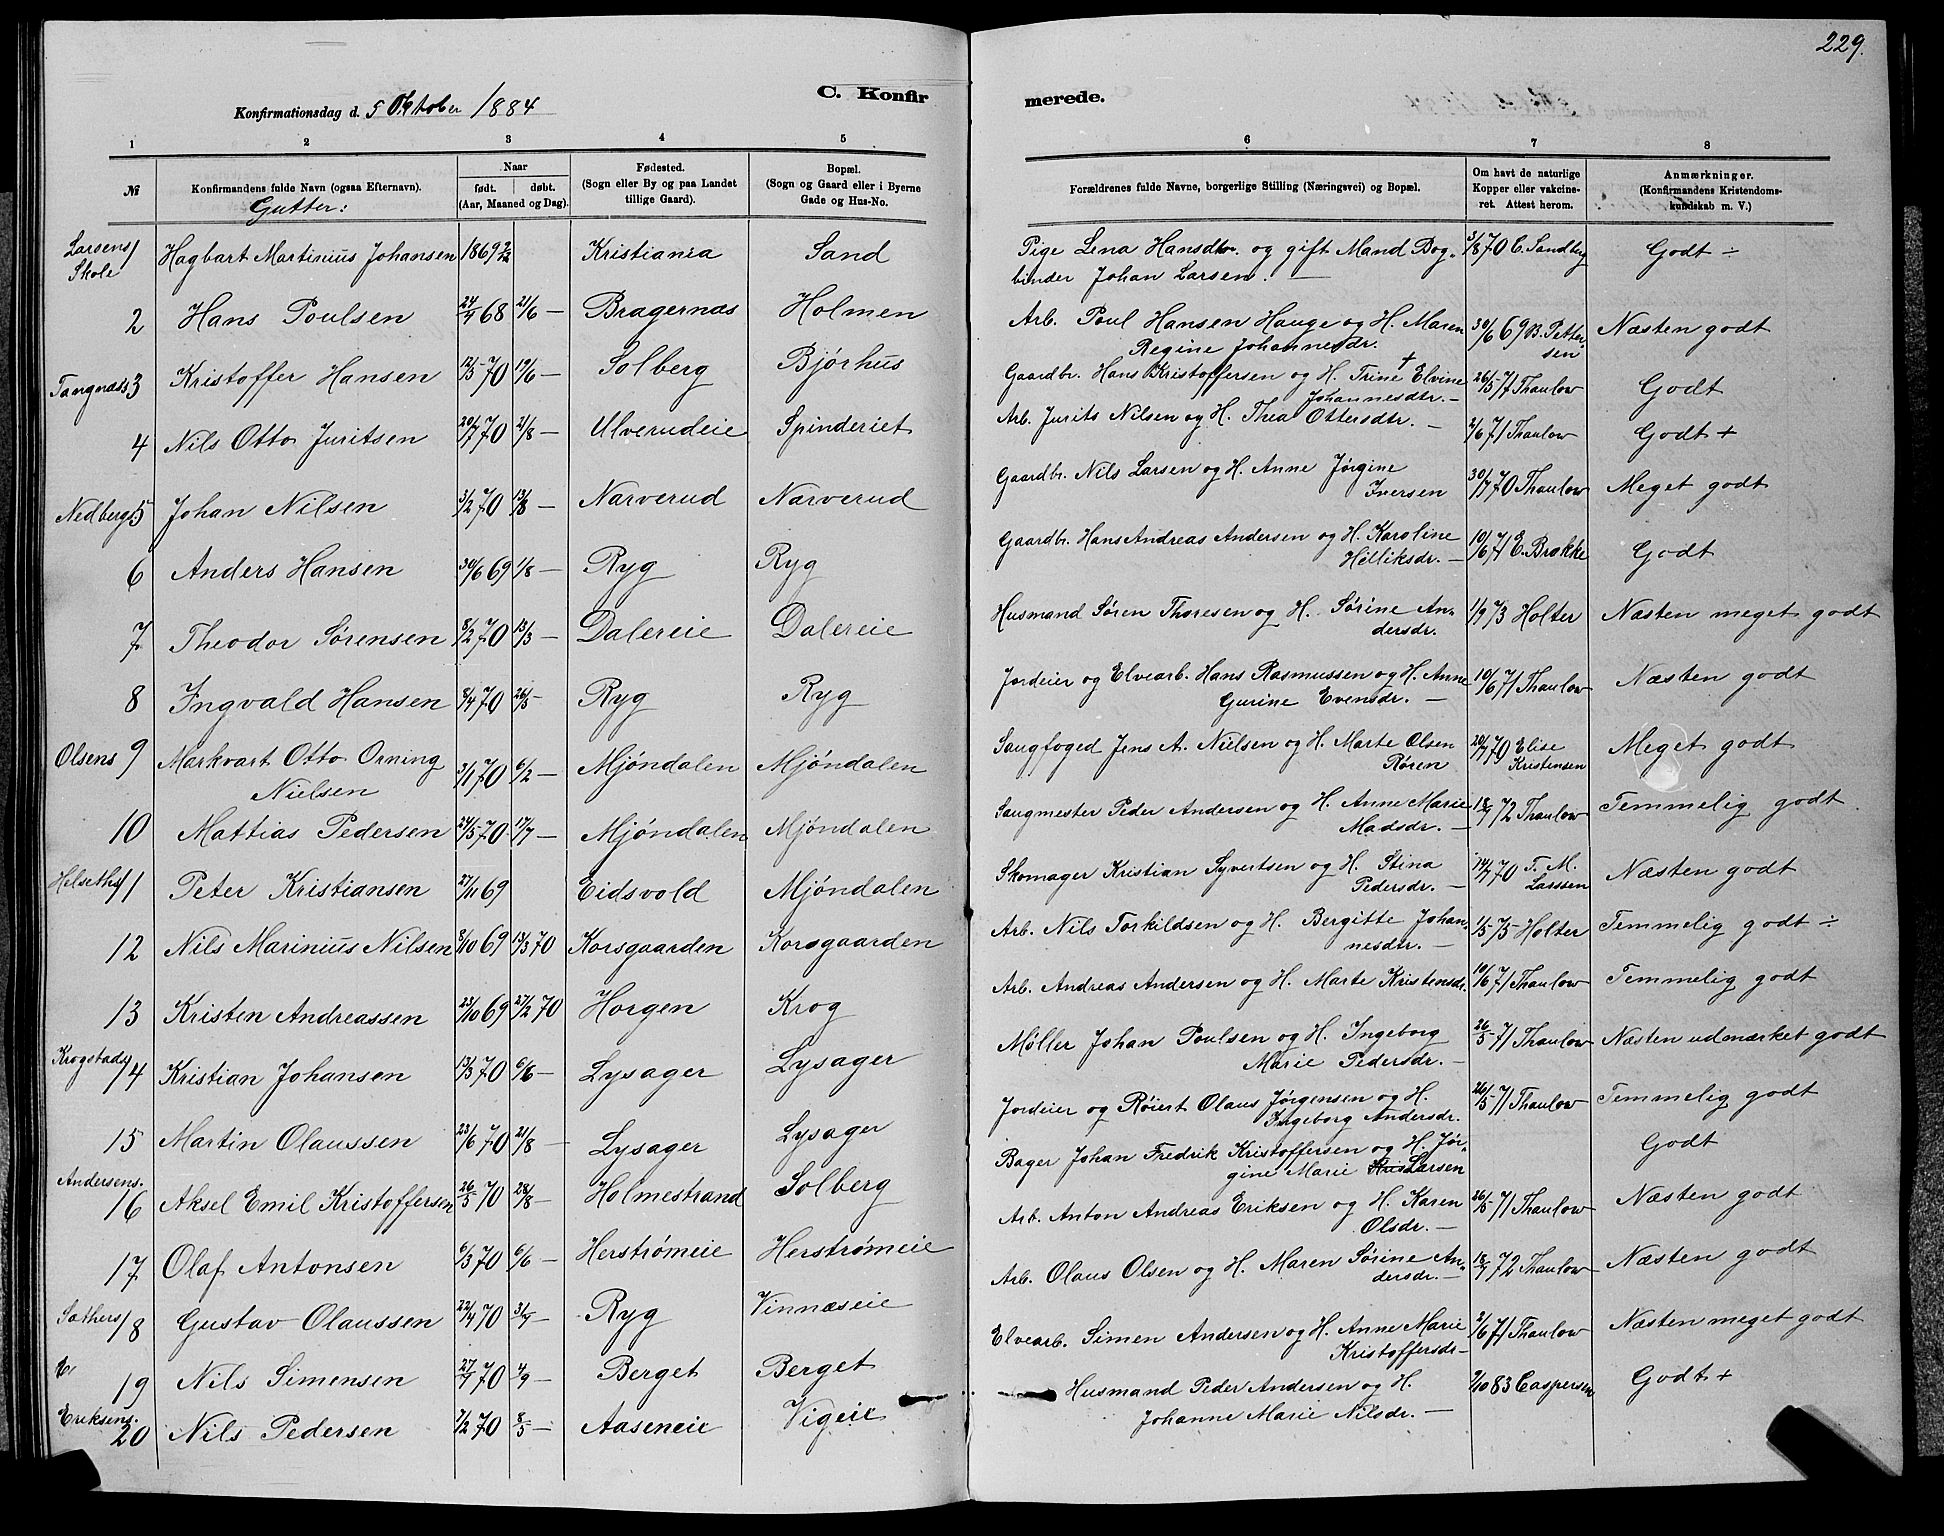 229.
C. Konfirmerede.
Konfirmationsdag d. 5 Oktober 1884
1 2 3 4 5 6 7 8
№ Konfirmandens fulde Navn (ogsaa Efternavn). Naar født. døbt. (Aar, Maaned og Dag). Fødested. (Sogn eller By og paa Landet tillige Gaard). Bopæl. (Sogn og Gaard eller i Byerne Gade og Hus-No. Forældrenes fulde Navne, borgerlige Stilling (Næringsvei) og Bopæl. Om havt de naturlige Kopper eller vakcineret. Attest herom. Anmærkninger. (Konfirmandens Kristendomskundskab m. V.)
Gutter:
Larsens Skole 1 Hagbart Martinius Johansen 1869 Kristiania Sand Pige Lena Hansdtr. og gift Mand Bog-
binder Johan Larsen. — 3/8 70 C. Sandberg Godt ÷
2 Hans Poulsen 24/4 68 21/6 — Bragernæs Holmen Arb. Poul Hansen Hauge og H. Maren
Regine Johannesdr. 30/6 69 B. Pettersen Næsten godt
Tangnæss 3 Kristoffer Hansen 12/5 70 19/6 — Solberg Bjórhus Gaardbr. Hans Kristoffersen og H. Trine † Elvine
Johannesdtr. — 26/5 71 Thaulow Godt
4 Nils Otto Juritsen 20/7 70 21/8 — Ulverudeie Spinderiet Arb. Jurits Nilsen og H. Thea Ottersdtr. — 2/6 71 Thaulow Godt +
Nedbergs 5 Johan Nilsen 3/2 70 13/8 — Narverud Narverud Gaardbr. Nils Larsen og H. Anne Jørgine
Iversen 30/7 70 Thaulow Meget godt
6 Anders Hansen 30/6 69 1/8 — Ryg Ryg Gaardbr. Hans Andreas Andersen og H. Karoline
Helliksdr. — 10/6 71 E. Brække Godt
7 Theodor Sørensen 8/2 70 13/3 — Dalereie Dalereie Husmand Søren Thoresen og H. Sørine An-
dersdr. 1/9 73 Holter Næsten meget godt
8 Ingvald Hansen 8/4 70 26/5 — Ryg Ryg Jordeier og Elvearb. Hans Rasmussen og H. Anne
Gurine Evensdr. — 10/6 71 Thaulow Næsten godt
Olsens 9 Markvart Otto Orning
Nielsen 3/1 70 6/2 — Mjóndalen Mjóndalen Saugfoged Jens A. Nielsen og H. Marte Olsen
Røren 20/7 70 Elise Kristensen Meget godt
10 Mattias Pedersen 24/5 70 17/7 — Mjóndalen Mjóndalen Saugmester Peder Andersen og H. Anne Marie
Madsdr. — 18/7 72 Thaulow Temmelig godt.
Helseths 11 Peter Kristiansen 27/11 69 Eidsvold Mjóndalen Skomager Kristian Syvertsen og H. Stina
Pedersdr. — 14/7 70 F. M. Larssen Næsten godt
12 Nils Marinius Nilsen 8/10 69 13/3 70 Korsgaarden Korsgaarden Arb. Nils Torkildsen og H. Bergitte Johan-
nesdtr. — 1/5 75 Holter Temmelig godt ÷
13 Kristen Andreassen 23/10 69 27/2 70 Horgen Krog Arb. Andreas Andersen og H. Marte Kristensdr. 10/6 71 Thaulow Temmelig godt
Krogstads 14 Kristian Johansen 13/3 70 6/6 — Lysager Lysager Møller Johan Poulsen og H. Ingeborg
Marie Pedersdr. — 26/5 71 Thaulow Næsten udmærket godt
15 Martin Olaussen 23/6 70 21/8 — Lysager Lysager Jordeier og Røiert Olaus Jørgensen og H.
Ingeborg Andersdr. 26/5 71 Thaulow Temmelig godt
Andersens. 16 Aksel Emil Kristoffersen 26/5 70 28/8 — Holmestrand Solberg Bager Johan Fredrik Kristoffersen og H. Jør-
gine Marie Larsen Godt
17 Olaf Antonsen 6/3 70 6/6 — Herstrømeie Herstrømeie Arb. Anton Andreas Eriksen og H. Karen
Olsdr. — 26/5 71 Thaulow Næsten godt
Sathers 18 Gustav Olaussen 22/4 70 3/7 — Ryg Vinnæseie Arb. Olaus Olsen og H. Maren Sørine An-
dersdr. — 18/7 72 Thaulow Næsten godt
19 Nils Simensen 27/7 70 4/9 — Berget Berget Elvearb. Simen Andersen og H. Anne Marie
Kristoffersdr — 2/6 71 Thaulow Næsten meget godt
Eriksens. 20 Nils Pedersen 7/2 70 8/5 — Aaseneie Vigeie Husmand Peder Andersen og H.
Johanne Marie Nilsdr. — 7/10 83 Caspersen Godt +